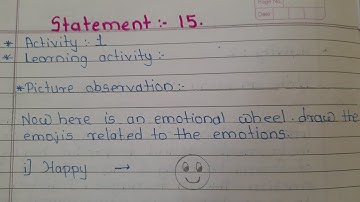 Page No.
Date
Statement :- 15.
* Activity : 1
* Learning activity :-
* Picture observation :-
Now here is an emotional wheel. draw the
emojis related to the emotions.
i] Happy →